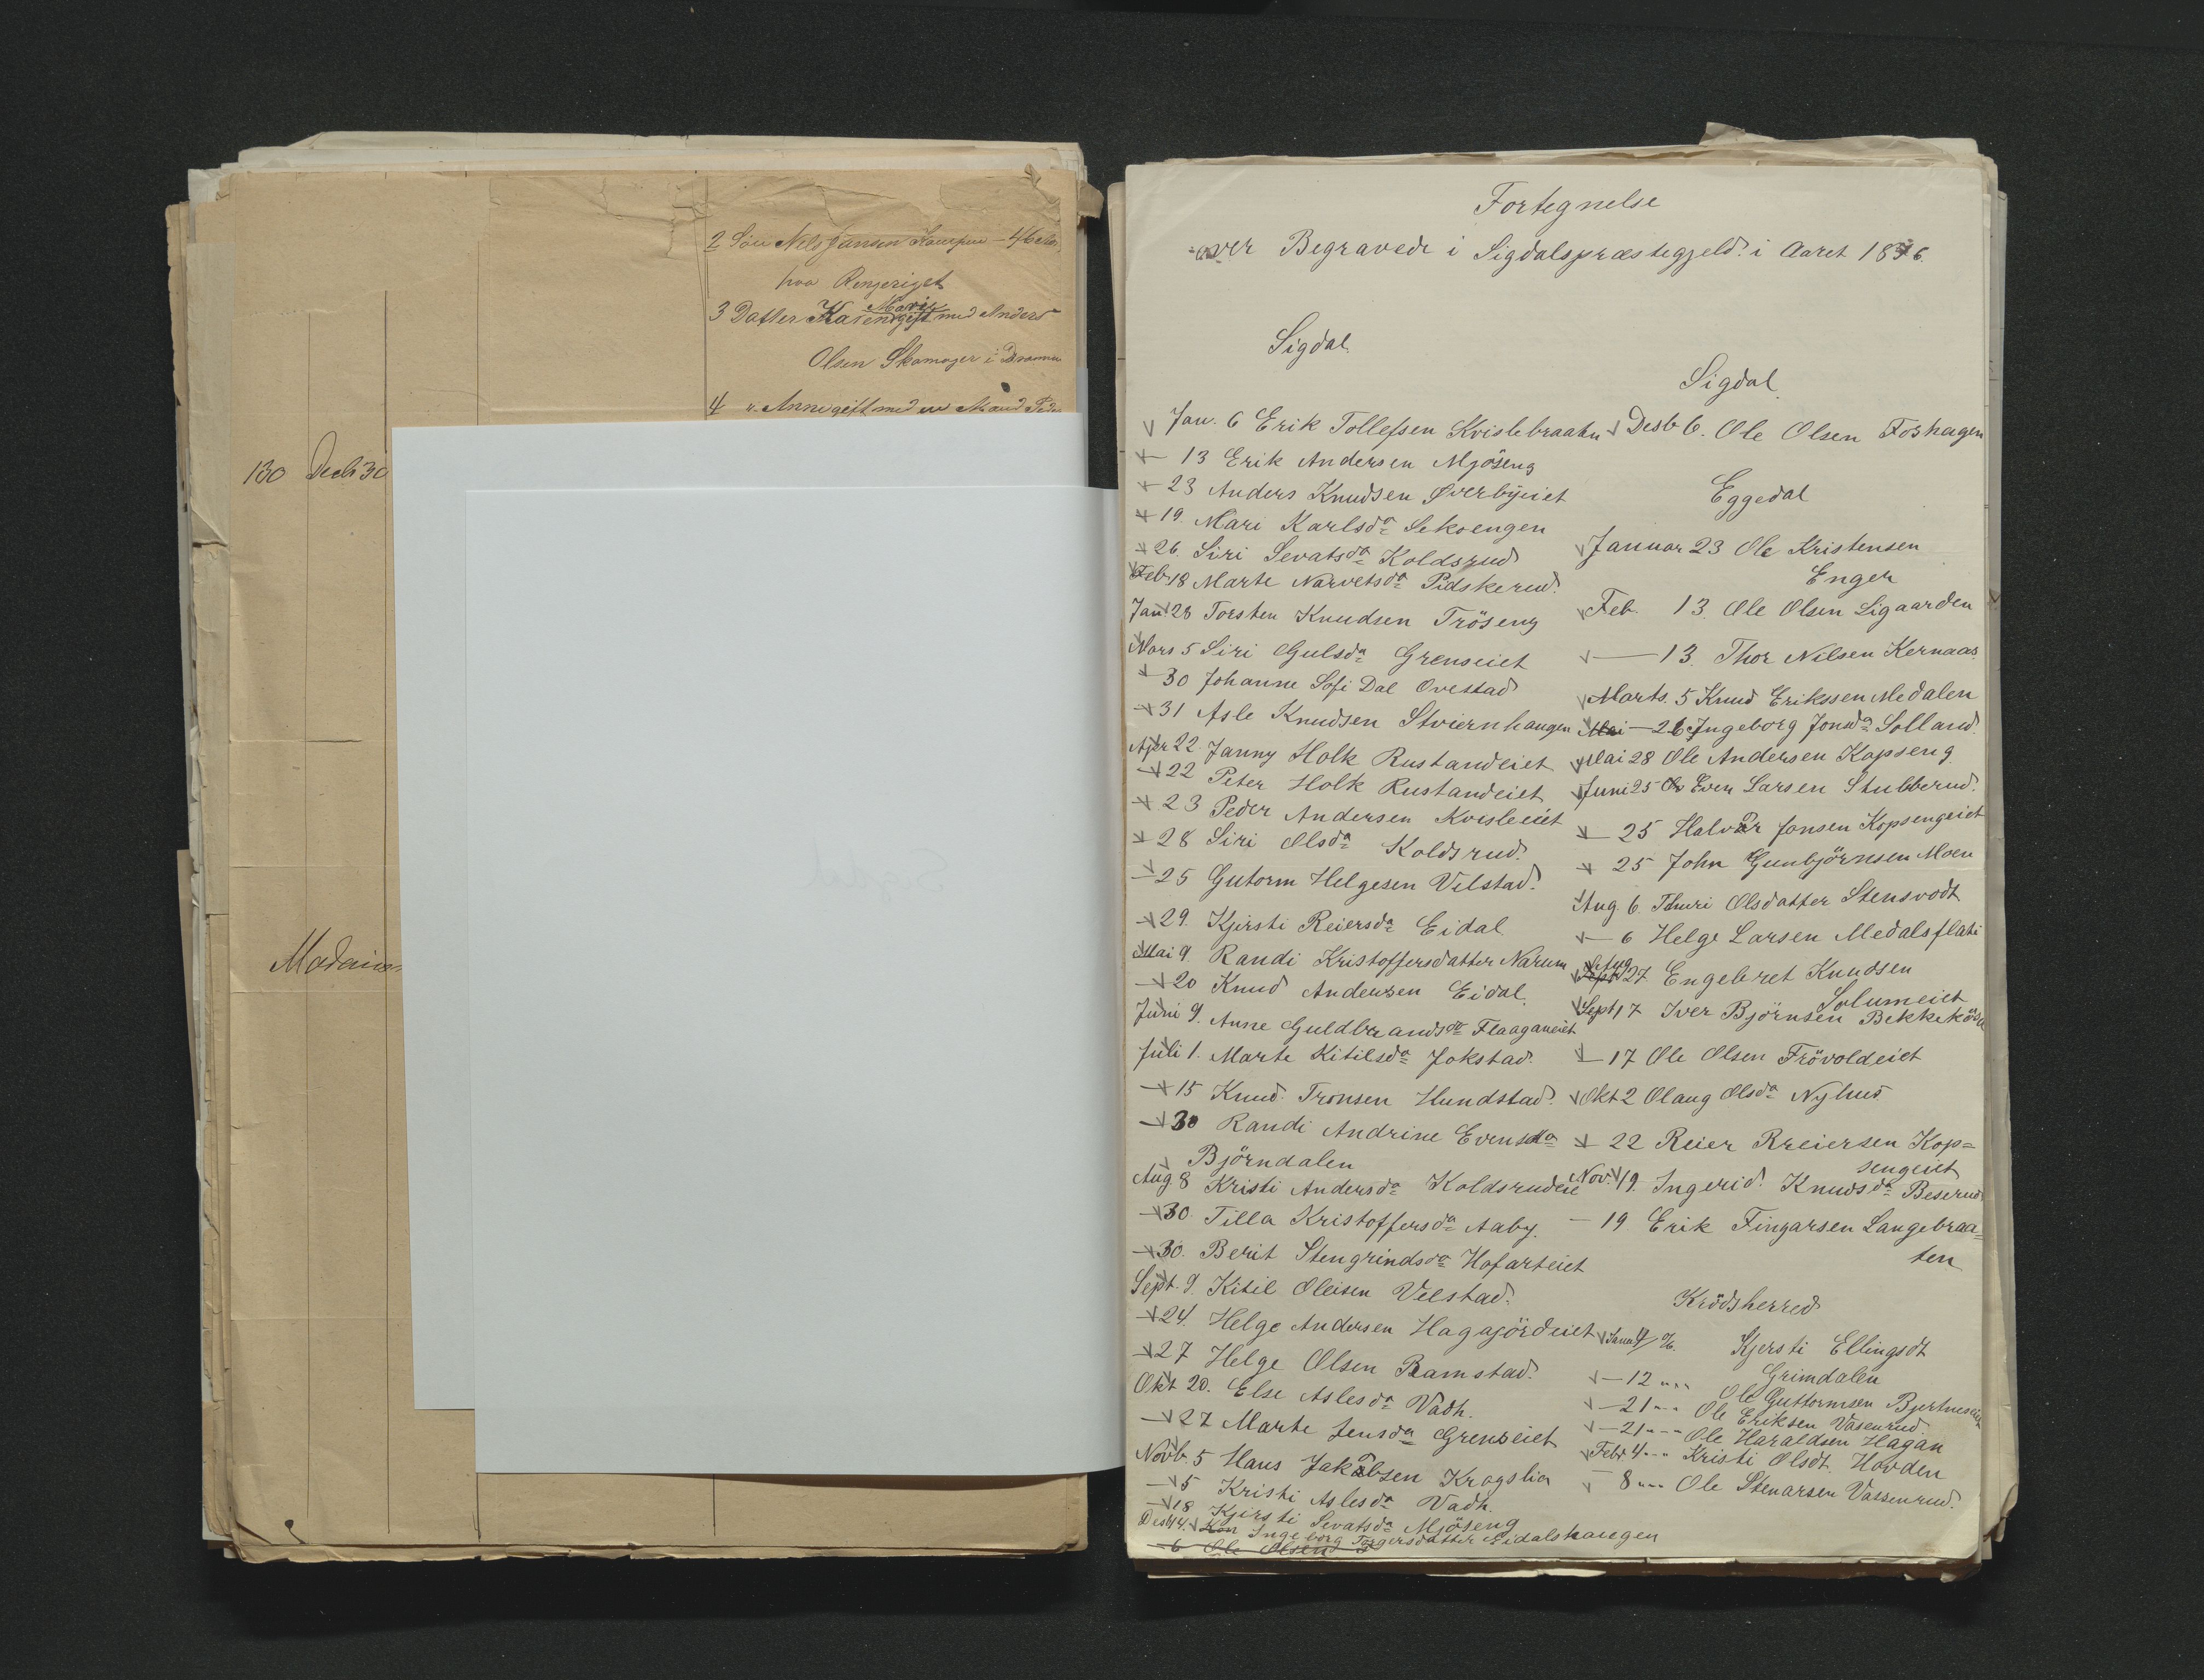 2 Søn Nels Jansen
paa Ringeriget
3 Datter Karen Marie gift med Anders
Olsen Skomager i Drammen
4 " Anne gift med en Mand
130 Decb 30
Fortegnelse
over Begravede i Sigdalspræstegjeld i Aaret 1896.
Sigdal.
Jan. 6 Erik Tollefsen Kvislebraaten
— 13 Erik Andersen Mjöseng
— 23 Anders Knudsen Øverbyeiet
— 19. Mari Karlsda Sekoengen
— 26. Siri Sevatsda Koldsrud
Feb 18 Marte Narvetsda Pidskerud.
Jan 28 Torsten Knudsen Tröseng
Mars 5 Siri Gulsda Grenseiet
— 30 Johanne Sofi Dal Ovestad
— 31 Asle Knudsen Stviernhaugen
Apr 22 Janny Holk Rustandeiet
— 22 Peter Holk Rustandeiet
— 23 Peder Andersen Kvisleeiet
— 28 Siri Olsda Koldsrud.
— 25 Gutorm Helgesen Velstad.
— 29. Kjersti Reiersda Eidal
Mai 9. Randi Kristoffersdatter Narum
— 20 Knud Andersen Eidal.
Juni 9. Anne Guldbrandsda Flaaganeiet
Juli 1. Marte Kitilsda Jokstad.
— 15 Knud Tronsen Hundstad.
— 30 Randi Andrine Evensda
Björndalen
Aug 8 Kristi Andersda Koldsrudeie
— 30. Tilla Kristoffersda Aaby.
— 30. Berit Stengrindsda Hofarteiet
Sept. 9. Kitil Oleisen Velstad.
— 24. Helge Andersen Hagajördeiet
— 27 Helge Olsen Ramstad.
Okt 20. Else Aslesda Vadh.
— 27 Marte Jensda Grenseiet
Novb. 5 Hans Jakobsen Kragslia
— 5 Kristi Aslesda Vadh.
— 18 Kjersti Sevatsda Mjöseng
Desb 14. Ingeborg Torgersdatter Eidalshaugen
— 6 Ole Olsen
Sigdal
Desb 6. Ole Olsen Foshagen
Eggedal
Januar 23 Ole Kristensen
Enger
Feb. 13. Ole Olsen Ligaarden
— 13. Thor Nilsen Kernaas
Marts. 5 Knud Erikssen Medalen
Mai — 26 Ingeborg Jonsda Solland.
Mai 28 Ole Andersen Kopseng
Juni 25 Even Larsen Stubberud.
— 25 Halvor Jonsen Kopsengeiet
— 25 John Gunbjörnsen Moen
Aug. 6. Thuri Olsdatter Stensvodt
— 6 Helge Larsen Medalsflati
Aug 27. Engebret Knudsen
Solumeiet
Sept 17 Iver Björnsen Bekkekösa
— 17 Ole Olsen Frövoldeiet
Okt 2 Olaug Olsda Nyhus
— 22 Reier Rreiersen Kop=
sengeiet
Nov. 19. Ingerid Knudsda Beserud
— 19. Erik Fingarsen Langebraa=
ten
Krödsherred
Kjersti Ellingsdt
Grimdalen
— 12 " Ole Guttormsen Bjertneseiet
— 21 " Ole Eriksen Vasenrud
— 21 " Ole Haraldsen Hagan
Febr 4 " Kristi Olsdt. Hovden
— 8 " Ole Stenarsen Vassenrud.